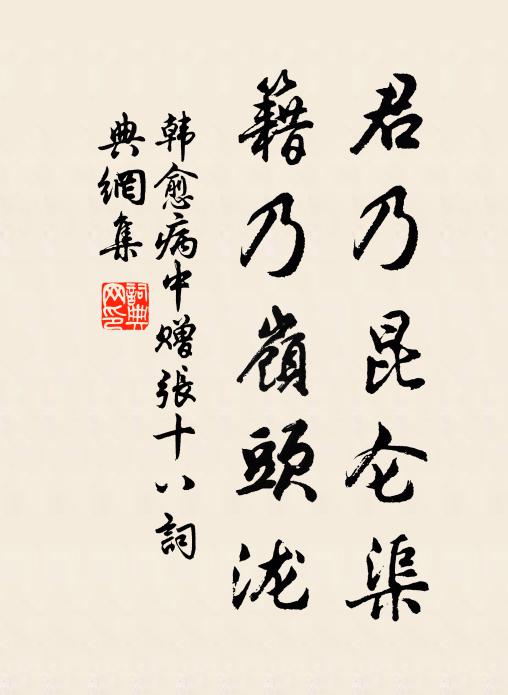 君乃昆仑渠
籍乃嶺頭泷
韩愈病中赠張十八詞
典網集
詞典网印